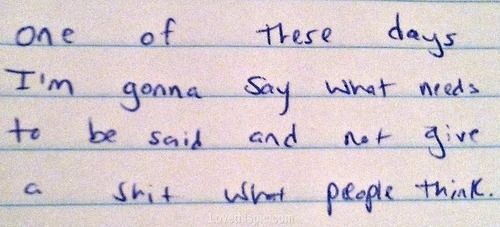 one of these days
I'm gonna say what needs
to be said and not give
a shit what people think.
LoveThisPic.com